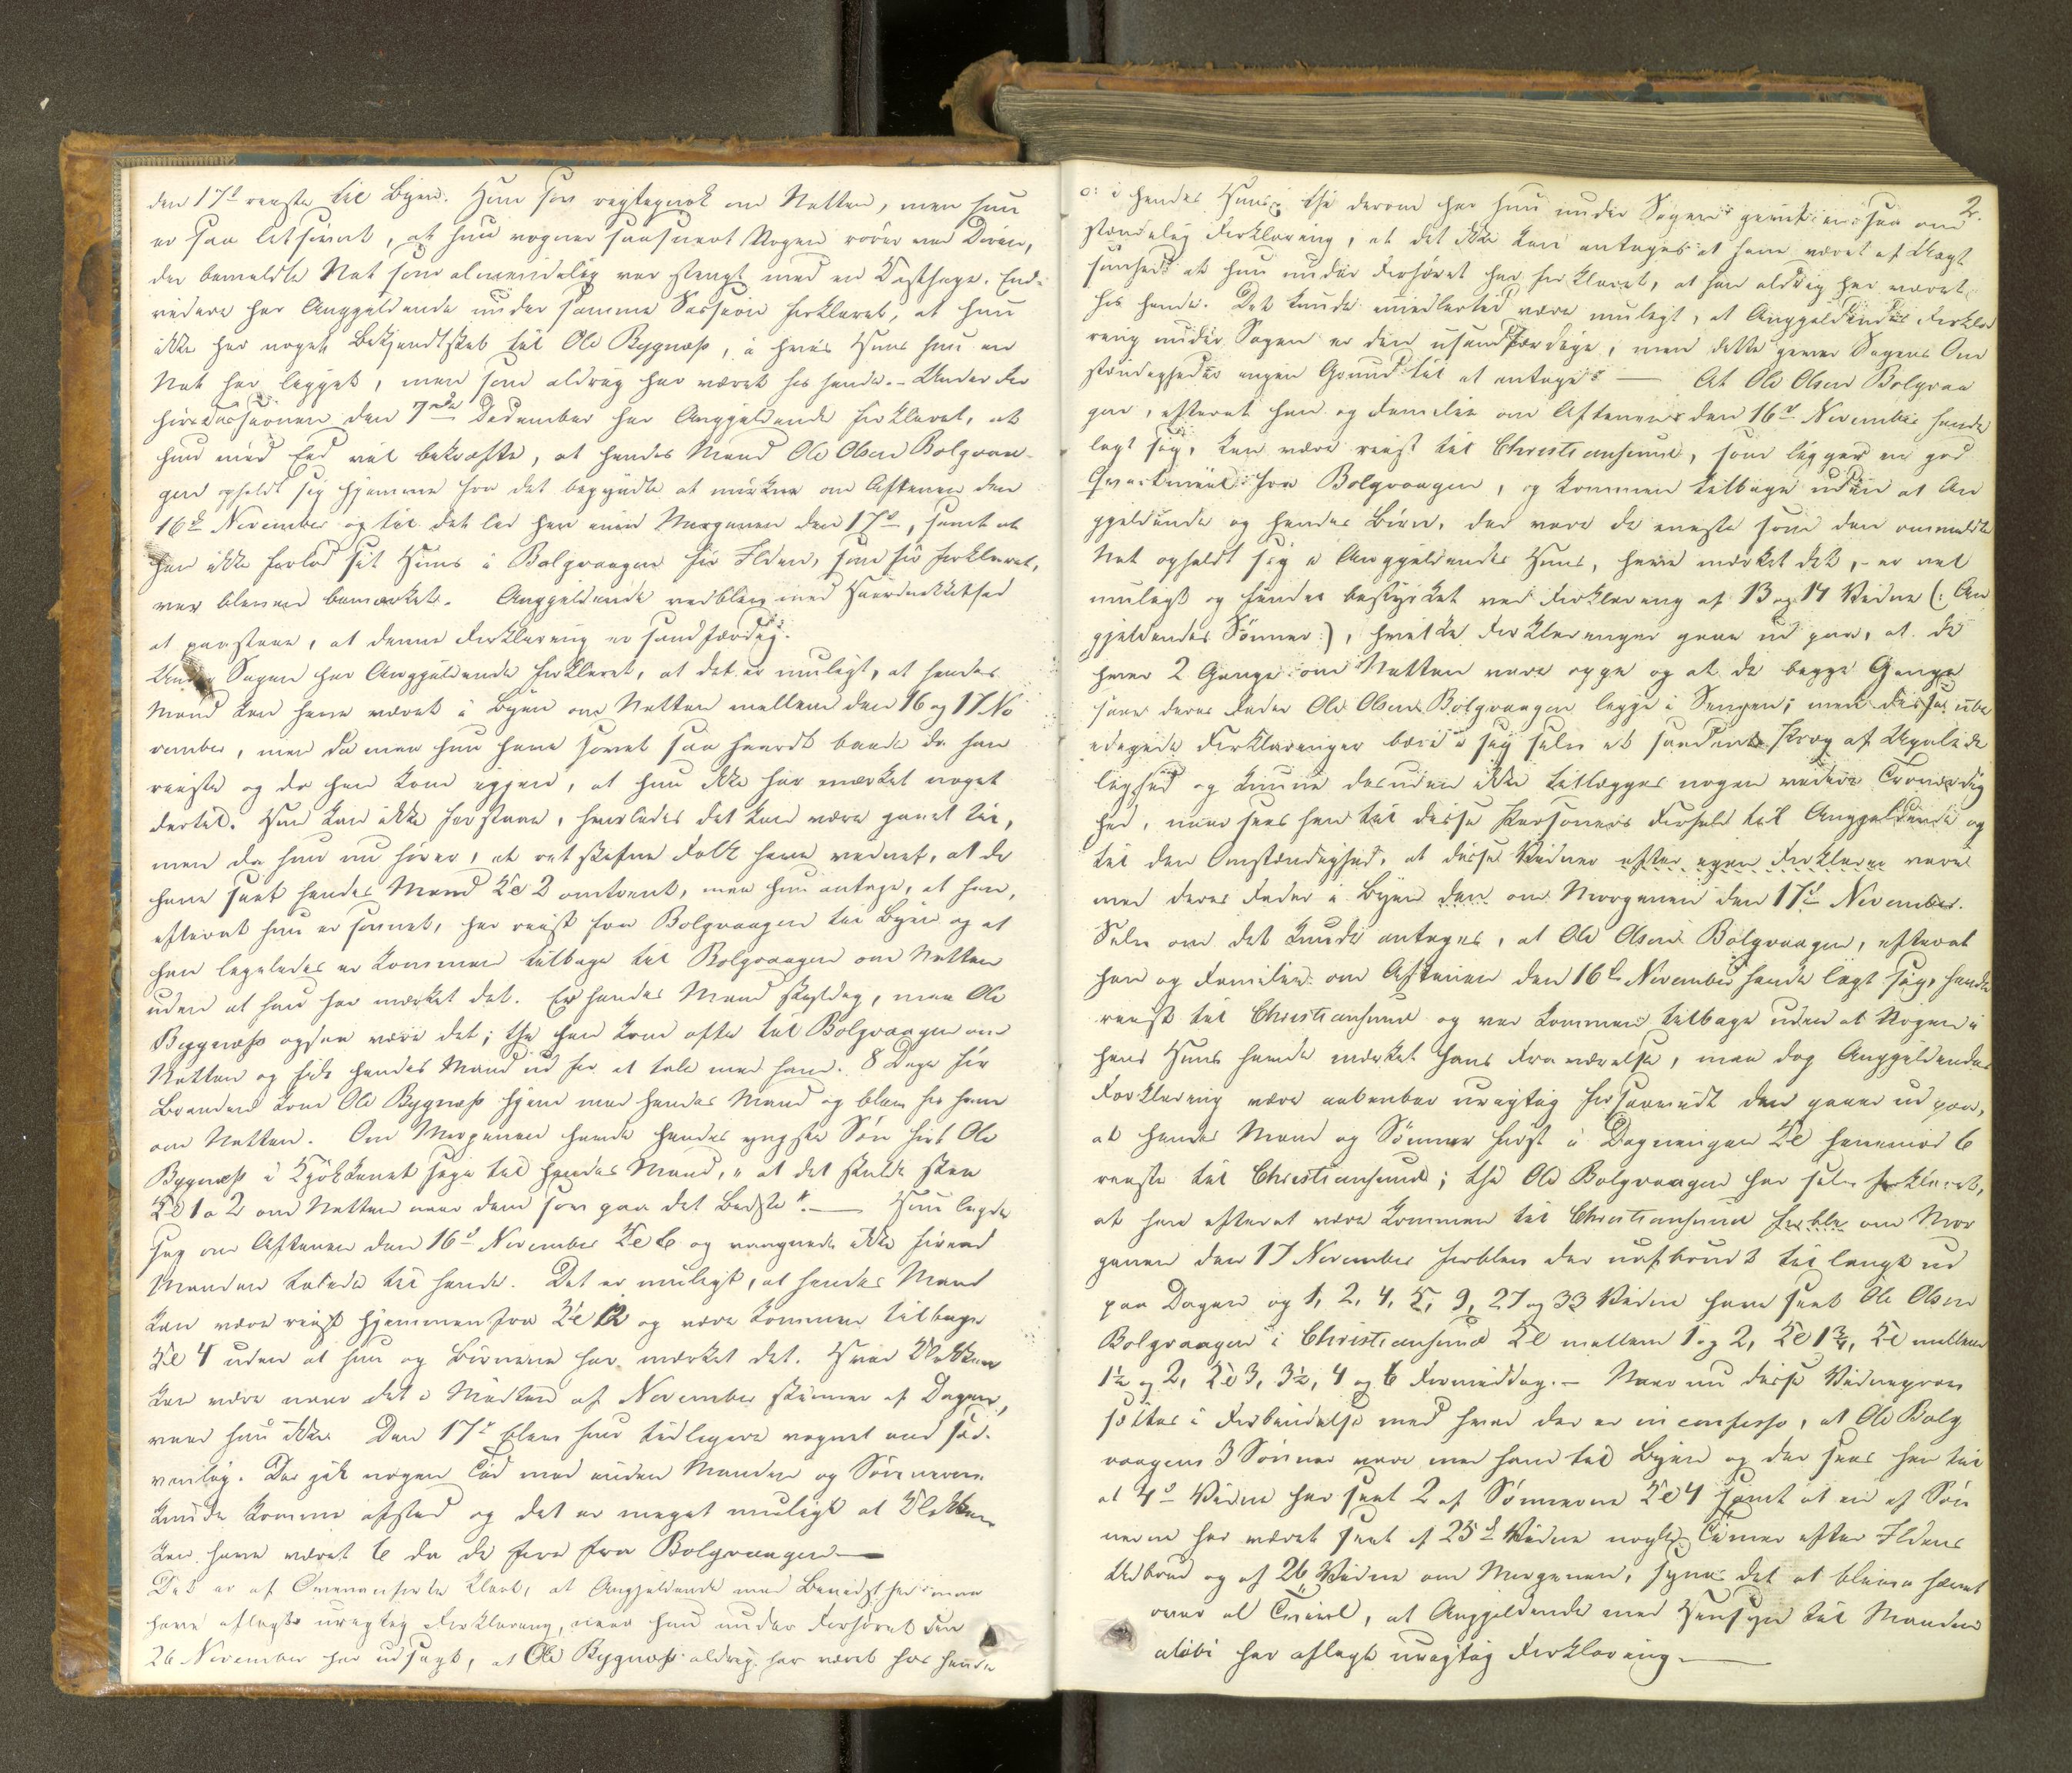 den 17d reiste til Byen. Hun sov rigtignok om Natten, men hun
er saa letsindt, at hun vogner saasnart Nogen rører ved Døren,
der bemeldte Nat som almindelig var stengt med en Dørhage. End-
videre har Anggjeldende under samme Session forklaret, at hun
ikke har noget Bekjendtskab til Ole Bygnæss, i hvis Huus hun en
Nat har ligget, men som aldrig har været hos hende. - Under For
hørssessionen den 7nde December har Anggjeldende forklaret, at
hun med Eed vil bekræfte, at hendes Mand Ole Olsen Bolgvaa-
gen opholdt sig hjemme fra det begyndte at mørkne om Aftenen den
16d November og til det led hen imod Morgenen den 17d, samt at
han ikke forlod sit Huus i Bolgvaagen før Ilden, som før forklaret,
var bleven bemærket. Anggjeldende vedblev med Haardnakkethed
at paastaae, at denne Forklaring er sandfærdig.
Under Sagen har Anggjeldende forklaret, at det er muligt, at hendes
Mand kan have været i Byen om Natten mellem den 16 og 17 No
vember, men da maa hun have sovet saa haardt baade da han
reiste og da han kom igjen, at hun ikke har mærket noget
dertil. Hun kan ikke forstaae, hvorledes det kan være gaaet til,
men da hun nu hører, at retskafne Folk have vidnet, at de
have seet hendes Mand Kl 2 omtrent, maa hun antage, at han,
efterat hun er sovnet, har reist fra Bolgvaagen til Byen og at
han ligeledes er kommen tilbage til Bolgvaagen om Natten
uden at hun har mærket det. Er hendes Mand skyldig, maa Ole
Bygnæss ogsaa være det; thi han kom ofte til Bolgvaagen om
Natten og fik hendes Mand ud for at tale med ham. 8 Dage før
Branden kom Ole Bygnæss hjem med hendes Mand og blev hos ham
om Natten. Om Morgenen havde hendes yngste Søn hørt Ole
Bygnæss i Kjøkkenet sige til hendes Mand, "at det skulde skee
Kl 1 a 2 om Natten naar dem sov paa det Bedste". — Hun lagde
sig om Aftenen den 16d November Kl 6 og vaagnede ikke førend
Manden talede til hende. Det er muligt, at hendes Mand
kan være reist hjemmen fra Kl 12 og være kommen tilbage
Kl 4 uden at hun og Børnene har mærket det. Hvad Klokken
kan være naar det i Midten af November skimer af Dagen,
veed hun ikke. Den 17d blev hun tidligere vognet end sæd-
vanlig. Der gik nogen Tid med inden Manden og Sønnerne
kunde komme afsted og det er meget muligt at Klokken
kan have været 6 da de foer fra Bolgvaagen —
Det er af Ovenanførte klart, at Angjeldende med Bevidsthed maa
have aflagt urigtig Forklaring, naar hun under Forhøret den
26 November har udsagt, at Ole Bygnæss aldrig har været hos hende
2.
o: i hendes Huus; thi derom har hun under Sagen givet en saa om
stændelig Forklaring, at det ikke kan antages at have været af Uagt
somhed at hun under Forhøret har forklaret, at han aldrig har været
hos hende. Det kunde imidlertid være muligt, at Anggjeldendes Forkla
ring under Sagen er den usandfærdige, men dette giver Sagens Om
stændigheder ingen Grund til at antage. — At Ole Olsen Bolgvaa
gen, efterat han og Familie om Aftenen den 16d November havde
lagt sig, kan være reist til Christiansund, som ligger en god
Qvartmiil fra Bolgvaagen, og kommen tilbage uden at An
ggjeldende og hendes Børn, der vare de eneste som den ommeldte
Nat opholdt sig i Anggjeldendes Huus, have mærket det, - er vel
muligt og findes bestyrket ved Forklaring af 13 og 14 Vidne (: An
gjeldendes Sønner:), hvilke Forklaringer gaae ud paa, at de
hver 2 Gange om Natten vare oppe og at de begge Gange
saae deres Fader Ole Olsen Bolgvaagen ligge i Sengen; men disse ube
edigede Forklaringer bære i sig selv et saadant Præg af Upaalide
lighed og kunne desuden ikke tillægges nogen videre Troværdig
hed, naar sees hen til disse Personers Forhold til Anggjeldende og
til den Omstændighed, at disse Vidner efter egen Forklaring vare
med deres Fader i Byen den om Morgenen den 17d November.
Selv om det kunde antages, at Ole Olsen Bolgvaagen, efterat
han og Familien om Aftenen den 16d November havde lagt sig, havde
reist til Christiansund og var kommen tilbage uden at Nogen i
hans Huus havde mærket hans Fraværelse, maa dog Anggjeldendes
Forklaring være aabenbar urigtig forsaavidt den gaaer ud paa,
at hendes Mand og Sønner først i Dagningen Kl henimod 6
reiste til Christiansund; thi Ole Bolgvaagen har selv forklaret,
at han efterat være kommen til Christiansund forblev om Mor
genen den 17 November forblev der uafbrudt til langt ud
paa Dagen og 1, 2, 4, 5, 9, 27 og 33 Vidne have seet Ole Olsen
Bolgvaagen i Christiansund Kl mellem 1 og 2, Kl 1¾, Kl mellem
1½ og 2, Kl 3, 3½, 4 og 6 Formiddag. - Naar nu disse Vidneprov
sættes i Forbindelse med hvad der er in confesso, at Ole Bolg
vaagens 3 Sønner vare med ham til Byen og der sees hen til
at 4d Vidne har seet 2 af Sønnerne Kl 4 samt at en af Søn
nerne har været seet af 25d Vidne nogle Timer efter Ildens
Udbrud og af 26 Vidne om Morgenen, synes det at blive hævet
over al Tvivl, at Anggjeldende med Hensyn til Mandens
alibi har aflagt urigtig Forklaring. —